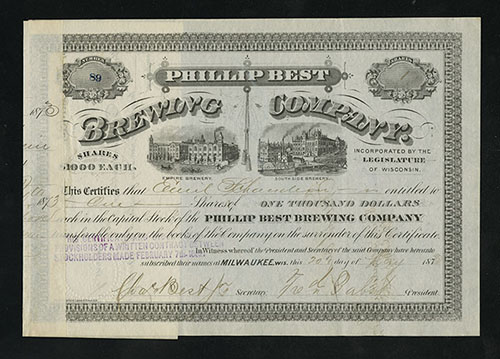 NUMBER
SHARES
89
PHILLIP BEST
1873
BREWING COMPANY.
SHARES
$1000 EACH.
EMPIRE BREWERY.
SOUTH SIDE BREWERY.
INCORPORATED BY THE
LEGISLATURE
OF WISCONSIN.
This Certifies that Emil Schandein is entitled to
One Shares of ONE THOUSAND DOLLARS
each in the Capital Stock of the PHILLIP BEST BREWING COMPANY
transferable only on the books of the company on the surrender of this Certificate.
PROVISIONS OF A WRITTEN CONTRACT
STOCKHOLDERS MADE FEBRUARY
In Witness whereof the President and Secretary of the said Company have hereunto
subscribed their names at MILWAUKEE, Wis. this day of 187
Chas Best Jr Secretary. Fred Pabst President.